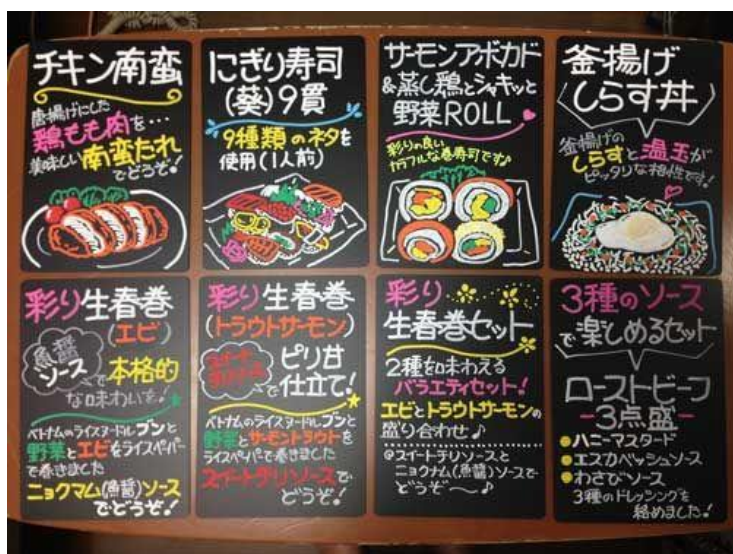 チキン南蛮
唐揚げにした
鶏もも肉を…
美味しい南蛮たれ
でどうぞ!
にぎり寿司
(葵)9貫
9種類のネタを
使用(1人前)
サーモンアボカド
&蒸し鶏とシャキッと
野菜ROLL
彩りの良い
カラフルな巻寿司です♪
釜揚げ
しらす丼
釜揚げの
しらすと温玉が
ピッタリな相性です!
彩り生春巻
(エビ)
魚醤
ソースで本格的
な味わいを!
ベトナムのライスヌードルブンと
野菜とエビをライスペーパー
で巻きました
ニョクマム(魚醤)ソース
でどうぞ!
彩り生春巻
(トラウトサーモン)
スイート
チリソースでピリ甘
仕立て!
ベトナムのライスヌードルブンと
野菜とサーモントラウトを
ライスペーパーで巻きました
スイートチリソースで
どうぞ!
彩り
生春巻セット
2種を味わえる
バラエティセット!
エビとトラウトサーモンの
盛り合わせ♪
@スイートチリソースと
ニョクナム(魚醤)ソースで
どうぞ〜♪
3種のソース
で楽しめるセット
ローストビーフ
-3点盛-
ハニーマスタード
エスカベッシュソース
わさびソース
3種のドレッシングを
絡めました!